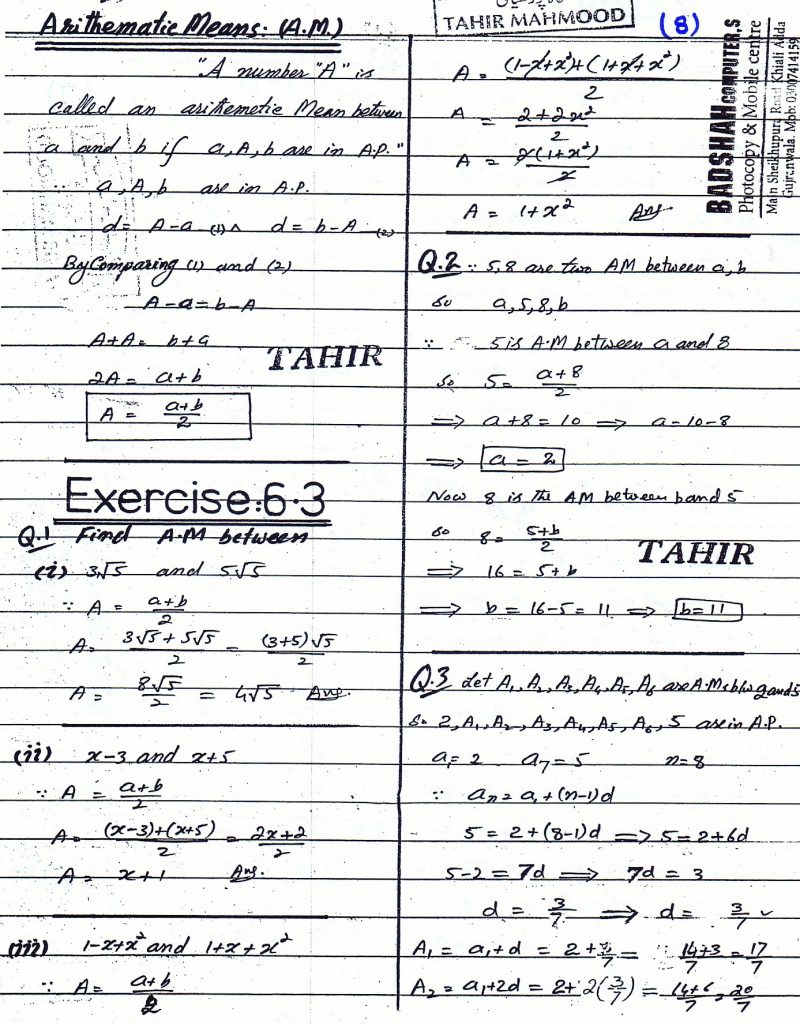 Arithematic Means: (A.M.)
"A number "A" is
called an arithemetic Mean between
a and b if a, A, b are in A.P."
∵ a, A, b are in A.P.
d = A-a (1) ∧ d = b-A (2)
By Comparing (1) and (2)
A-a = b-A
A+A = b+a
2A = a+b
TAHIR
A = a+b/2
Exercise:6.3
Q.1 Find A.M between
(i) 3√5 and 5√5
∵ A = a+b/2
A = 3√5+5√5/2 = (3+5)√5/2
A = 8√5/2 = 4√5 Ans.
(ii) x-3 and x+5
∵ A = a+b/2
A = (x-3)+(x+5)/2 = 2x+2/2
A = x+1 Ans.
(iii) 1-x+x² and 1+x+x²
∵ A = a+b/2
TAHIR MAHMOOD
(8)
BADSHAH COMPUTER,S
Photocopy & Mobile centre
Main Sheikhupura Road Khiali Adda
Gujranwala. Mob: 03007414159
A = (1-x+x²)+(1+x+x²)/2
A = 2+2x²/2
A = 2(1+x²)/2
A = 1+x² Ans
Q.2 ∵ 5,8 are two AM between a,b
so a,5,8,b
∵ 5 is A.M between a and 8
so 5 = a+8/2
⟹ a+8 = 10 ⟹ a=10-8
⟹ a = 2
Now 8 is the AM between b and 5
so 8 = 5+b/2
TAHIR
⟹ 16 = 5+b
⟹ b = 16-5 = 11 ⟹ b=11
Q.3 Let A₁, A₂, A₃, A₄, A₅, A₆ are A.Ms b/w 2 and 5
So 2, A₁, A₂, A₃, A₄, A₅, A₆, 5 are in A.P.
a₁= 2 a₇ = 5 n=8
∵ aₙ = a₁+(n-1)d
5 = 2+(8-1)d ⟹ 5=2+6d
5-2 = 7d ⟹ 7d = 3
d = 3/7 ⟹ d = 3/7
A₁ = a₁+d = 2+3/7 = 14+3/7 = 17/7
A₂ = a₁+2d = 2+2(3/7) = 14+6/7 = 20/7